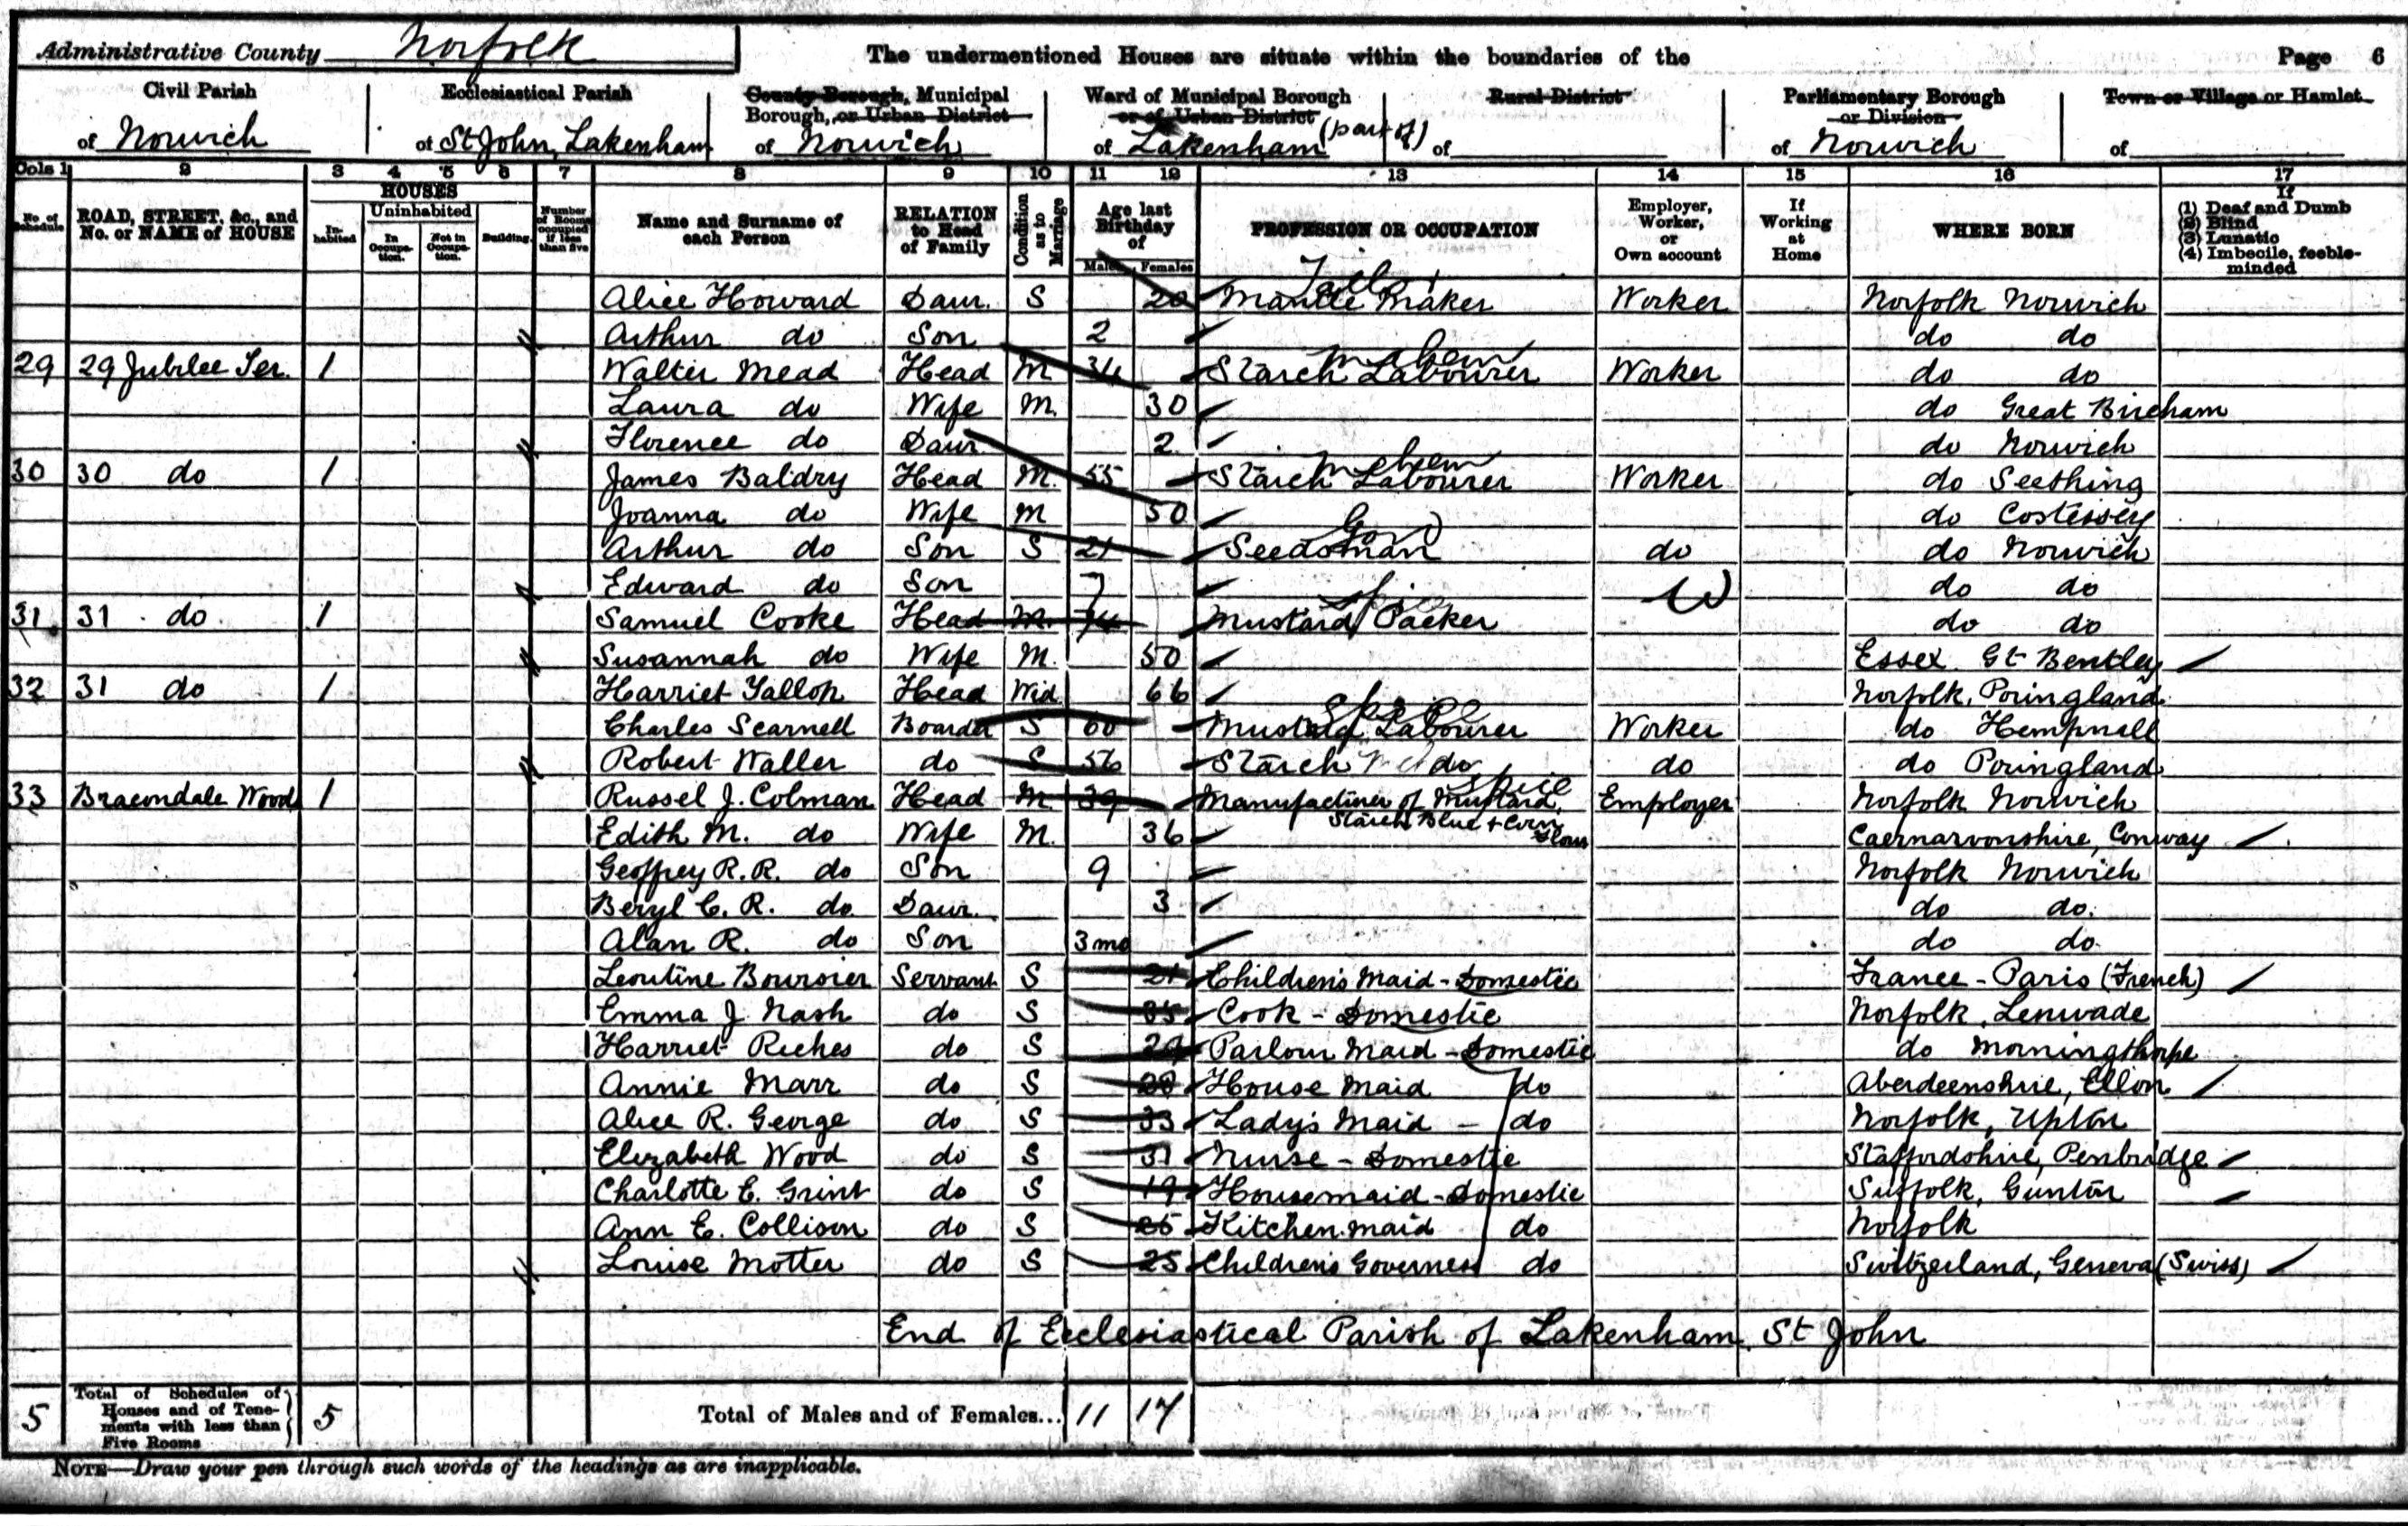 Administrative County Norfolk The undermentioned Houses are situate within the boundaries of the Page 6
Civil Parish Ecclesiastical Parish County Borough, Municipal Borough, or Urban District Ward of Municipal Borough or of Urban District Rural District Parliamentary Borough or Division Town or Village or Hamlet
of Norwich of St John, Lakenham of Norwich of Lakenham (part of) of of Norwich of
Cols 1 2 3 4 5 6 7 8 9 10 11 12 13 14 15 16 17
No. of Schedule ROAD, STREET, &c., and No. or NAME of HOUSE HOUSES Inhabited Uninhabited In Occupation. Not in Occupation. Building. Number of Rooms occupied if less than five Name and Surname of each Person RELATION to Head of Family Condition as to Marriage Age last Birthday of Males Females PROFESSION OR OCCUPATION Employer, Worker, or Own account If Working at Home WHERE BORN If (1) Deaf and Dumb (2) Blind (3) Lunatic (4) Imbecile, feeble-minded
Alice Howard Daur. S 20 Mantle Maker Worker Norfolk Norwich
Arthur do Son 2 do do
29 29 Jubilee Ter. 1 Walter Mead Head M 34 Starch Labourer Worker do do
Laura do Wife M. 30 do Great Bircham
Florence do Daur. 2 do Norwich
30 30 do 1 James Baldry Head M. 55 Starch Labourer Worker do Seething
Joanna do Wife M 50 do Costessey
Arthur do Son S 21 Seedsman do do Norwich
Edward do Son 7 do do
31 31 do 1 Samuel Cooke Head M. 74 Mustard Packer W do do
Susannah do Wife M. 50 Essex Gt Bentley
32 31 do 1 Harriet Yallop Head Wid 66 Norfolk, Poringland
Charles Scarnell Boarder S 60 Mustard Labourer Worker do Hempnall
Robert Waller do S 56 Starch do do do Poringland
33 Bracondale Wood 1 Russel J. Colman Head M 39 Manufacturer of Mustard, Starch Blue + Corn Flour Employer Norfolk Norwich
Edith M. do Wife M. 36 Caernarvonshire, Conway
Geoffrey R. R. do Son 9 Norfolk Norwich
Beryl C. R. do Daur. 3 do do.
Alan R. do Son 3 mo do do
Leontine Boursier Servant S 21 Children's Maid - Domestic France - Paris (French)
Emma J. Nash do S 35 Cook - Domestic Norfolk, Lenwade
Harriet Riches do S Parlour Maid - Domestic do Morningthorpe
Annie Marr do S 28 House Maid do Aberdeenshire, Ellon
Alice R. George do S 33 Lady's Maid - do Norfolk, Upton
Elizabeth Wood do S 31 Nurse - Domestic Staffordshire, Penbridge
Charlotte E. Grint do S 19 Housemaid - Domestic Suffolk, Gunton
Ann E. Collison do S 25 Kitchen maid do Norfolk
Louise Motter do S 25 Children's Governess do Switzerland, Geneva (Swiss)
End of Ecclesiastical Parish of Lakenham St John
5 Total of Schedules of Houses and of Tenements with less than Five Rooms 5 Total of Males and of Females... 11 17
NOTE—Draw your pen through such words of the headings as are inapplicable.